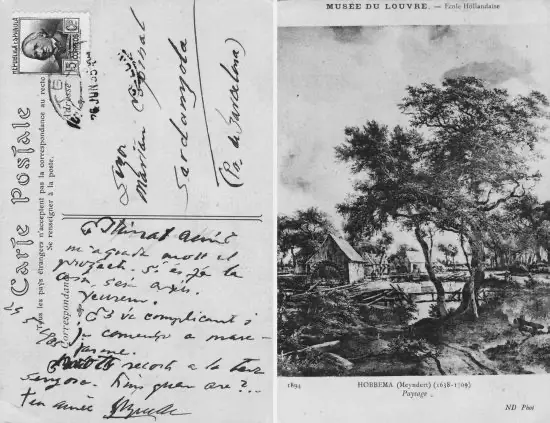 REPUBLICA ESPAÑOLA
15 CENTIMOS
CARTE POSTALE
Tous les pays étrangers n'acceptent pas la correspondance au recto
Se renseigner à la poste.
Correspondance
Adresse
Senyor
Marian
Sardanyola
(Pr. de Barcelona)
Estimat amic
m'agrada molt el
projecte. Si es fa la
cosa, sem
veurem.
Es va complicant i
ja comença a mare-
jarme.
records a la teva
senyora. Fins quan are?...
teu amic
MUSÉE DU LOUVRE. — École Hollandaise
1894
HOBBEMA (Meyndert) (1638-1709)
Paysage.
ND Phot